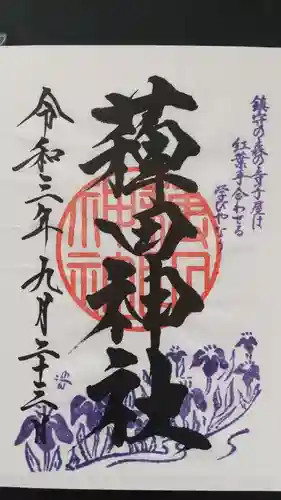 鎮守の森の寺子屋は
紅葉手合わせる
学びやなり
蓮田神社
令和三年九月二十三日